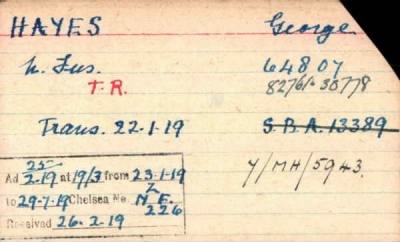 HAYES George
N. Fus. 64807
T.R. 82761. 30778
Trans. 22-1-19 S.B.A. 13389
25-
Ad 2-19 at 19/3 from 23-1-19
to 29-7-19 Chelsea No. N.F.
226
Received 26-2-19
Y/MH/5943.